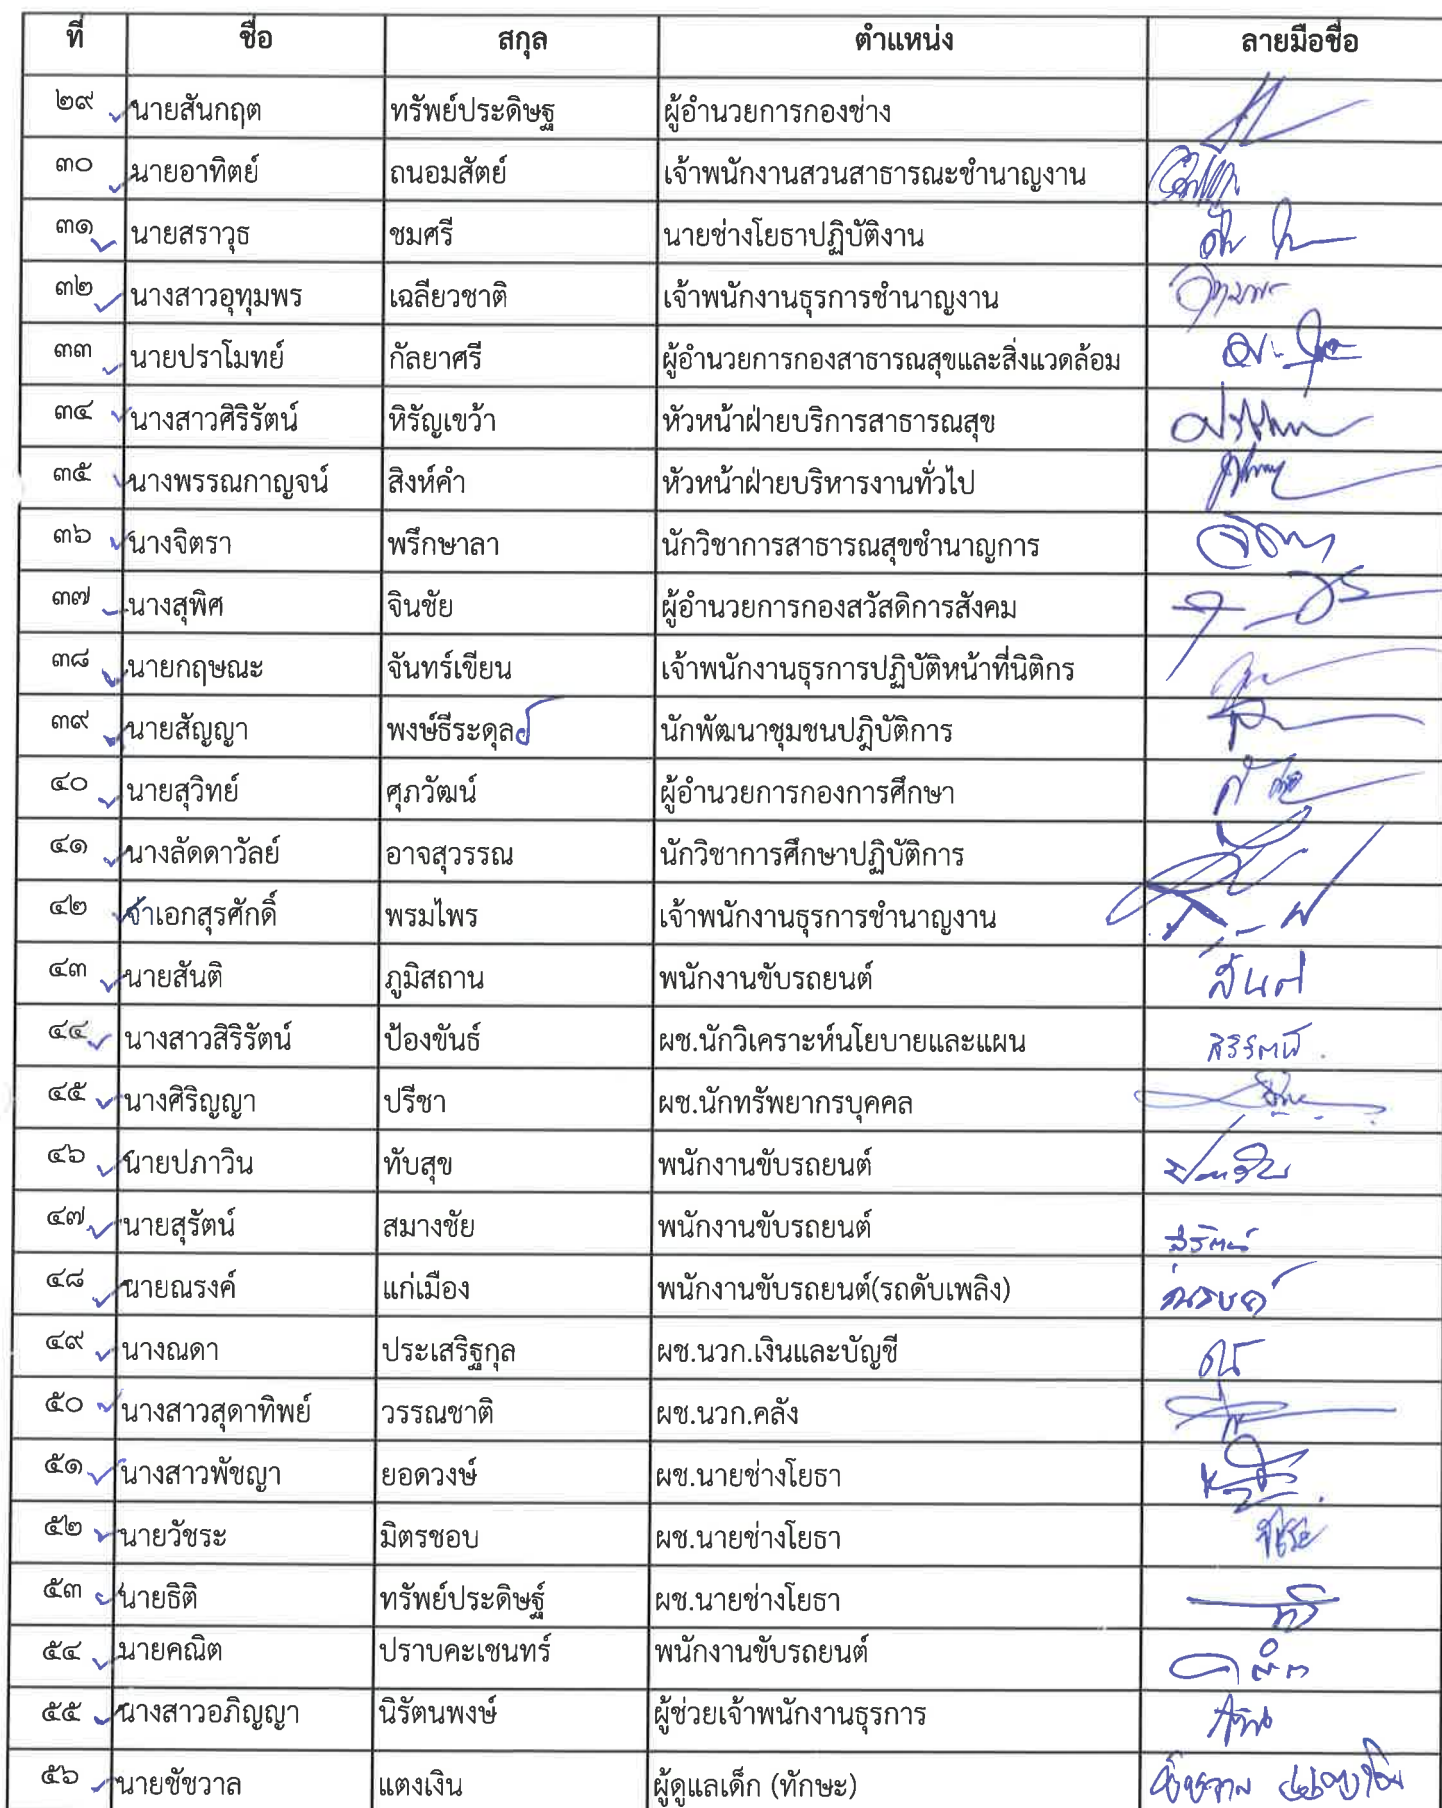 ที่ ชื่อ สกุล ตำแหน่ง ลายมือชื่อ
๒๙ นายสันกฤต ทรัพย์ประดิษฐ ผู้อำนวยการกองช่าง
๓๐ นายอาทิตย์ ถนอมสัตย์ เจ้าพนักงานสวนสาธารณะชำนาญงาน
๓๑ นายสราวุธ ชมศรี นายช่างโยธาปฏิบัติงาน
๓๒ นางสาวอุทุมพร เฉลียวชาติ เจ้าพนักงานธุรการชำนาญงาน
๓๓ นายปราโมทย์ กัลยาศรี ผู้อำนวยการกองสาธารณสุขและสิ่งแวดล้อม
๓๔ นางสาวศิริรัตน์ หิรัญเขว้า หัวหน้าฝ่ายบริการสาธารณสุข
๓๕ นางพรรณกาญจน์ สิงห์คำ หัวหน้าฝ่ายบริหารงานทั่วไป
๓๖ นางจิตรา พรึกษาลา นักวิชาการสาธารณสุขชำนาญการ
๓๗ นางสุพิศ จินชัย ผู้อำนวยการกองสวัสดิการสังคม
๓๘ นายกฤษณะ จันทร์เขียน เจ้าพนักงานธุรการปฏิบัติหน้าที่นิติกร
๓๙ นายสัญญา พงษ์ธีระดุล นักพัฒนาชุมชนปฏิบัติการ
๔๐ นายสุวิทย์ ศุภวัฒน์ ผู้อำนวยการกองการศึกษา
๔๑ นางลัดดาวัลย์ อาจสุวรรณ นักวิชาการศึกษาปฏิบัติการ
๔๒ จ่าเอกสุรศักดิ์ พรมไพร เจ้าพนักงานธุรการชำนาญงาน
๔๓ นายสันติ ภูมิสถาน พนักงานขับรถยนต์ สันติ
๔๔ นางสาวสิริรัตน์ ป้องขันธ์ ผช.นักวิเคราะห์นโยบายและแผน สิริรัตน์
๔๕ นางศิริญญา ปรีชา ผช.นักทรัพยากรบุคคล
๔๖ นายปภาวิน ทับสุข พนักงานขับรถยนต์
๔๗ นายสุรัตน์ สมางชัย พนักงานขับรถยนต์ สุรัตน์
๔๘ นายณรงค์ แก่เมือง พนักงานขับรถยนต์(รถดับเพลิง) ณรงค์
๔๙ นางณดา ประเสริฐกุล ผช.นวก.เงินและบัญชี
๕๐ นางสาวสุดาทิพย์ วรรณชาติ ผช.นวก.คลัง
๕๑ นางสาวพัชญา ยอดวงษ์ ผช.นายช่างโยธา
๕๒ นายวัชระ มิตรชอบ ผช.นายช่างโยธา
๕๓ นายธิติ ทรัพย์ประดิษฐ์ ผช.นายช่างโยธา
๕๔ นายคณิต ปราบคะเชนทร์ พนักงานขับรถยนต์ คณิต
๕๕ นางสาวอภิญญา นิรัตนพงษ์ ผู้ช่วยเจ้าพนักงานธุรการ
๕๖ นายชัชวาล แตงเงิน ผู้ดูแลเด็ก (ทักษะ) ชัชวาล แตงเงิน